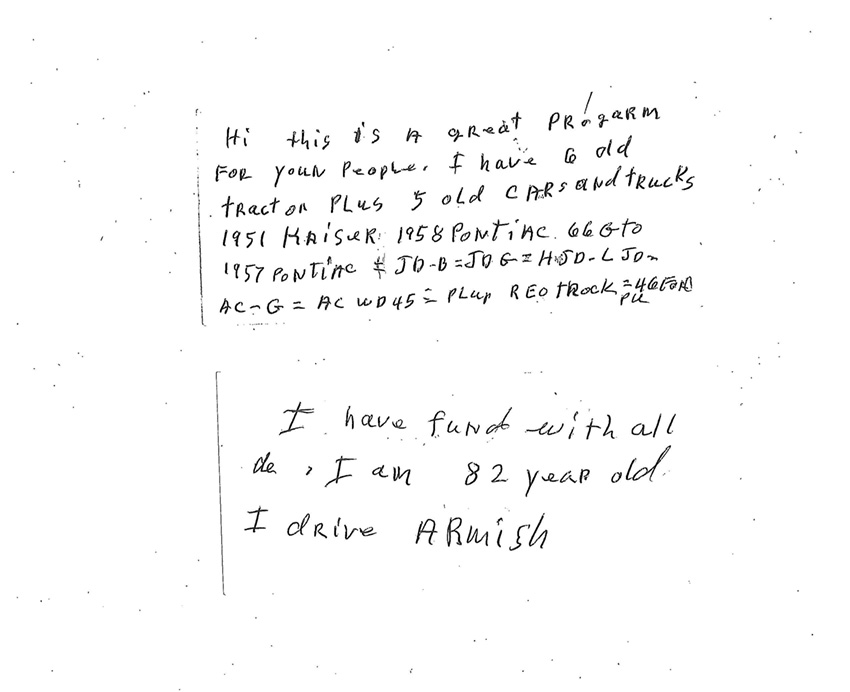 Hi this is A gReat PRogaRm
FOR youR PeopLe. I have 6 old
tRactoR PLus 5 old CARs and tRucks
1951 KAiSeR 1958 PONTiAC. 66 Gto
1957 PONTiAC JD-B = JD G = H JD-L JD-
AC-G = AC WD45 = PLup REO tRock = 46 FoRD
PU
I have fund with all
de, I am 82 yeaR old.
I dRive ARmish